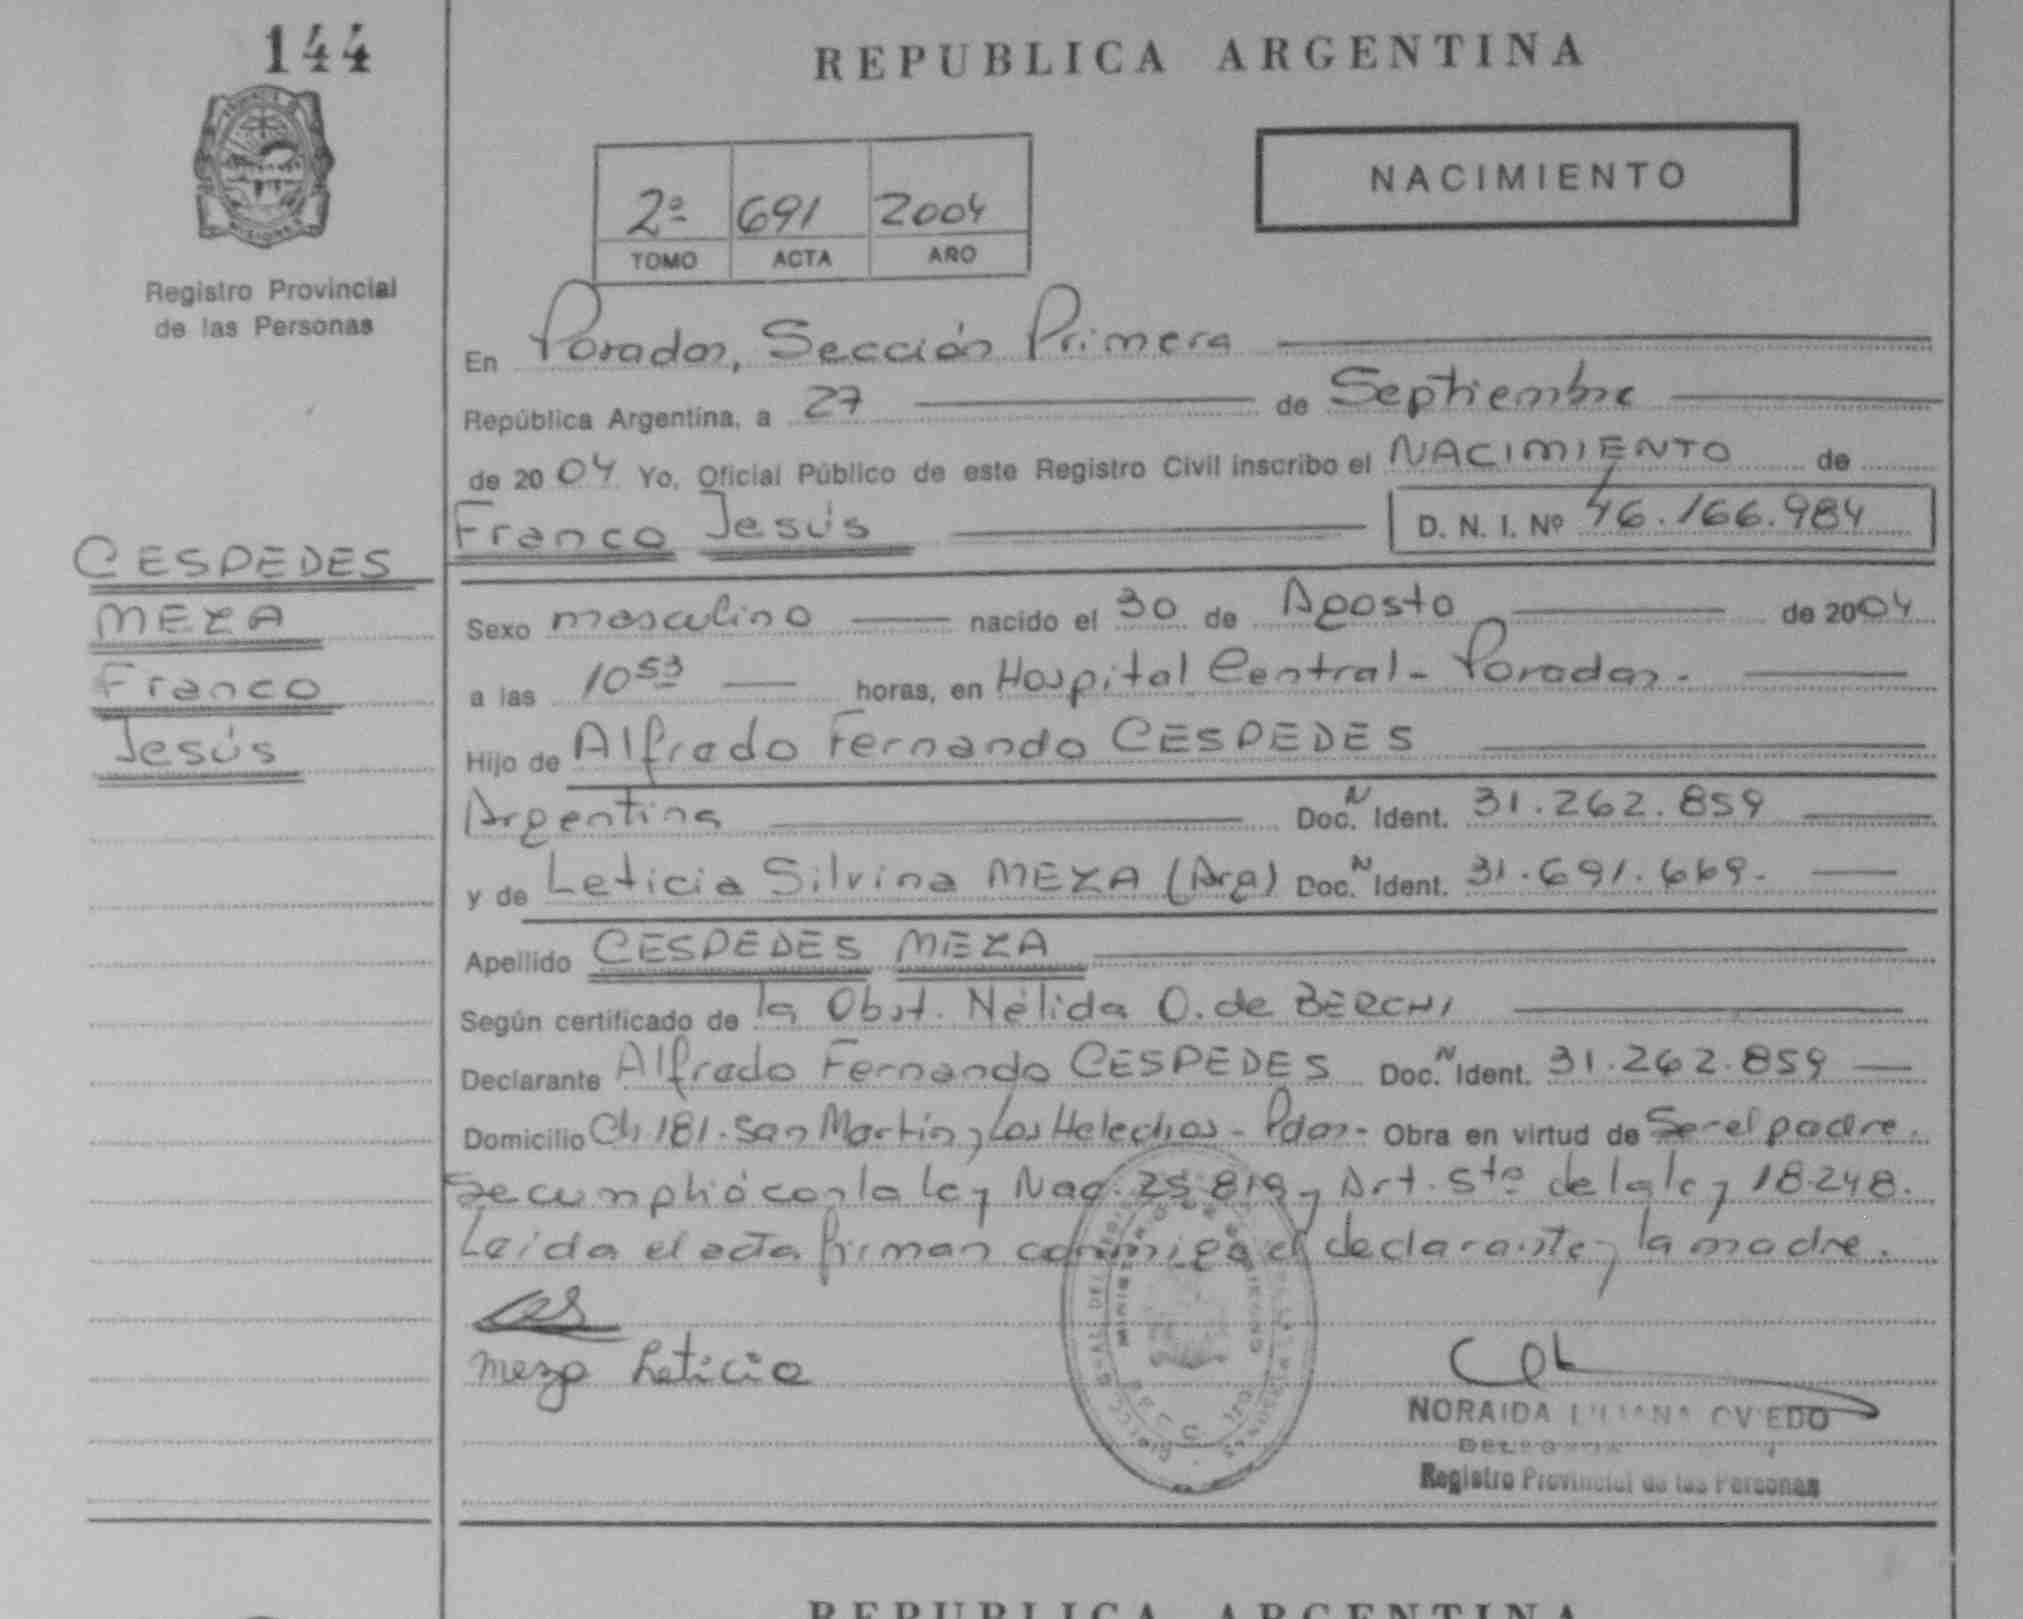 144
REPUBLICA ARGENTINA
NACIMIENTO
2º 691 2004
TOMO ACTA AÑO
Registro Provincial
de las Personas
En Posadas, Sección Primera
República Argentina, a 27 de Septiembre
de 2004 Yo, Oficial Público de este Registro Civil inscribo el NACIMIENTO de
Franco Jesús D. N. I. Nº 46.166.984
CESPEDES
MEZA
Franco
Jesús
Sexo masculino nacido el 30 de Agosto de 2004
a las 10 53 horas, en Hospital Central - Posadas.
Hijo de Alfredo Fernando CESPEDES
Argentina Doc. N Ident. 31.262.859
y de Leticia Silvina MEZA (Arg) Doc. N Ident. 31.691.669.
Apellido CESPEDES MEZA
Según certificado de la Obst. Nélida O. de BERCHI
Declarante Alfredo Fernando CESPEDES Doc. N Ident. 31.262.859
Domicilio Ch 181. San Martín y Los Helechos - Pdas - Obra en virtud de Ser el padre.
Se cumplió con la ley Nac. 25.819 y Art. 5to de la ley 18.248.
Leída el acta firman conmigo el declarante y la madre.
Meza Leticia
NORAIDA LILIANA OVIEDO
Registro Provincial de las Personas
REPUBLICA ARGENTINA